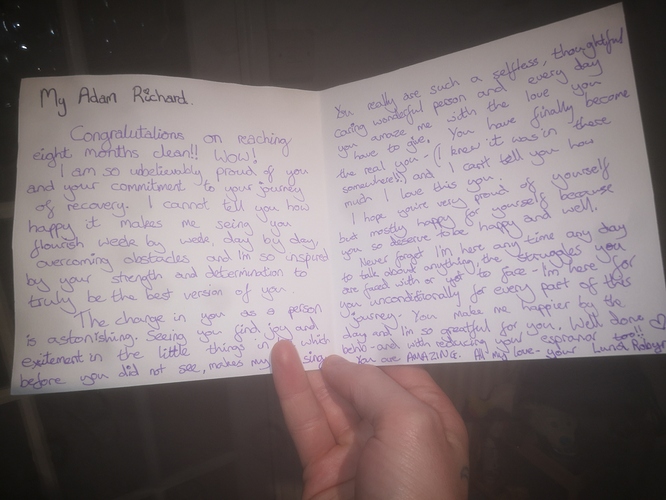 My Adam Richard.
Congratulations on reaching
eight months clean!! Wow!
I am so unbelievably proud of you
and your commitment to your journey
of recovery. I cannot tell you how
happy it makes me seeing you
flourish week by week, day by day,
overcoming obstacles and I'm so inspired
by your strength and determination to
truly be the best version of you.
The change in you as a person
is astonishing. Seeing you find joy and
exitement in the little things in which
before you did not see, makes my sing
You really are such a selfless, thoughtful
caring wonderful person and every day
you amaze me with the love you
have to give. You have finally become
the real you - (I knew it was in there
somewhere!) and I can't tell you how
much I love this you.
I hope you're very proud of yourself
but mostly happy for yourself because
you so deserve to be happy and well.
Never forget I'm here any time any day
to talk about anything, the struggles you
are faced with or yet to face - I'm here for
you unconditionally for every part of this
journey. You make me happier by the
day and I'm so greatful for you. Well done
behb - and with reducing your espranor too!!
You are AMAZING. All my love - your Lunar